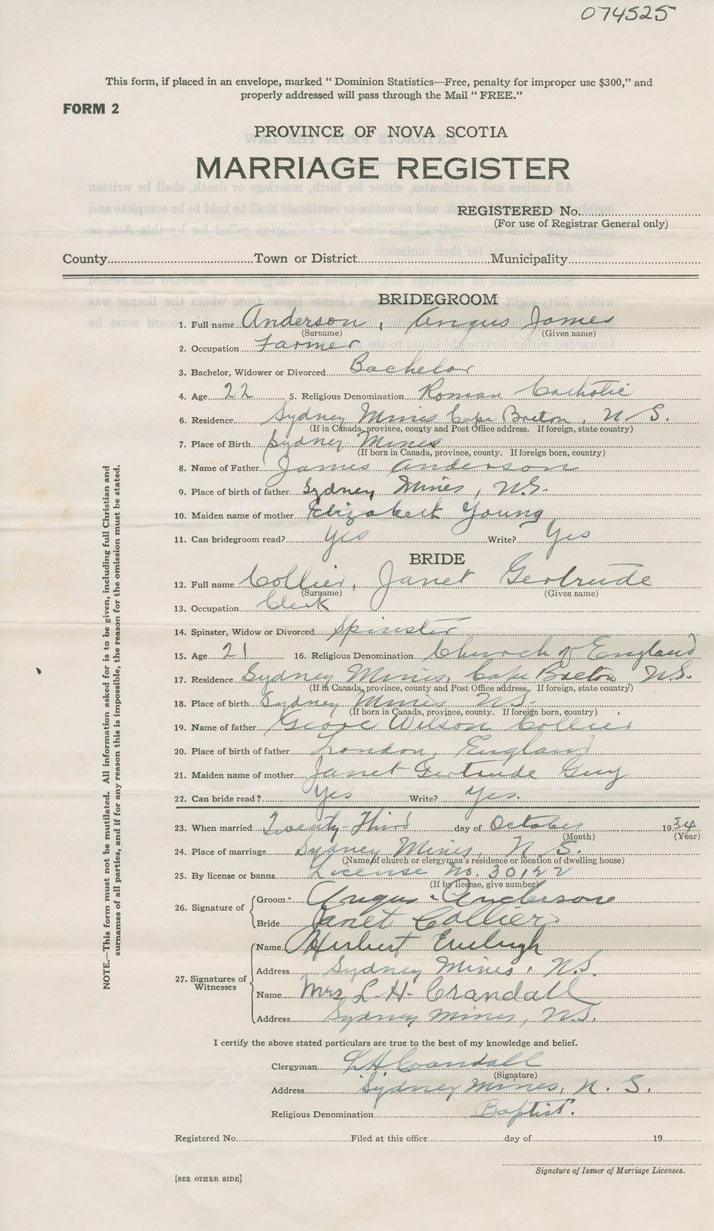 074525
This form, if placed in an envelope, marked "Dominion Statistics—Free, penalty for improper use $300," and
properly addressed will pass through the Mail "FREE."
FORM 2
PROVINCE OF NOVA SCOTIA
MARRIAGE REGISTER
REGISTERED No.
(For use of Registrar General only)
County Town or District Municipality
BRIDEGROOM
1. Full name Anderson, Angus James
(Surname) (Given name)
2. Occupation Farmer
3. Bachelor, Widower or Divorced Bachelor
4. Age 22 5. Religious Denomination Roman Catholic
6. Residence Sydney Mines Cape Breton, N.S.
(If in Canada, province, county and Post Office address. If foreign, state country)
7. Place of Birth Sydney Mines
(If born in Canada, province, county. If foreign born, country)
8. Name of Father James Anderson
9. Place of birth of father Sydney Mines, N.S.
10. Maiden name of mother Elizabeth Young
11. Can bridegroom read? Yes Write? Yes
BRIDE
12. Full name Collier, Janet Gertrude
(Surname) (Given name)
13. Occupation Clerk
14. Spinster, Widow or Divorced Spinster
15. Age 21 16. Religious Denomination Church of England
17. Residence Sydney Mines, Cape Breton, N.S.
(If in Canada, province, county and Post Office address. If foreign, state country)
18. Place of birth Sydney Mines N.S.
(If born in Canada, province, county. If foreign born, country)
19. Name of father Wilson Collier
20. Place of birth of father London, England
21. Maiden name of mother Janet Gertrude Guy
22. Can bride read? Yes Write? Yes.
23. When married Twenty-Third day of October 1934
(Month) (Year)
24. Place of marriage Sydney Mines, N.S.
(Name of church or clergyman's residence or location of dwelling house)
25. By license or banns License No. 30122
(If by license, give number)
26. Signature of Groom Angus Anderson
Bride Janet Collier
27. Signatures of Witnesses Name Herbert
Address Sydney Mines, N.S.
Name Mrs L. H. Crandall
Address Sydney Mines, N.S.
I certify the above stated particulars are true to the best of my knowledge and belief.
Clergyman L.H. Crandall
(Signature)
Address Sydney Mines, N.S.
Religious Denomination Baptist.
Registered No. Filed at this office day of 19
Signature of Issuer of Marriage Licenses.
[SEE OTHER SIDE]
NOTE.—This form must not be mutilated. All information asked for is to be given, including full Christian and
surnames of all parties, and if for any reason this is impossible, the reason for the omission must be stated.